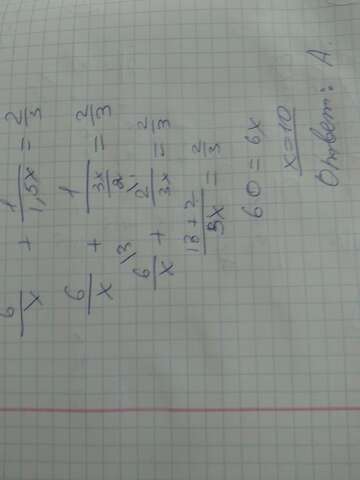 6/x + 1/1,5x = 2/3
6/x + 1/(3x/2) = 2/3
6/x \3 + 2/3x \1 = 2/3
18+2/3x = 2/3
60 = 6x
x=10
Ответ: А.